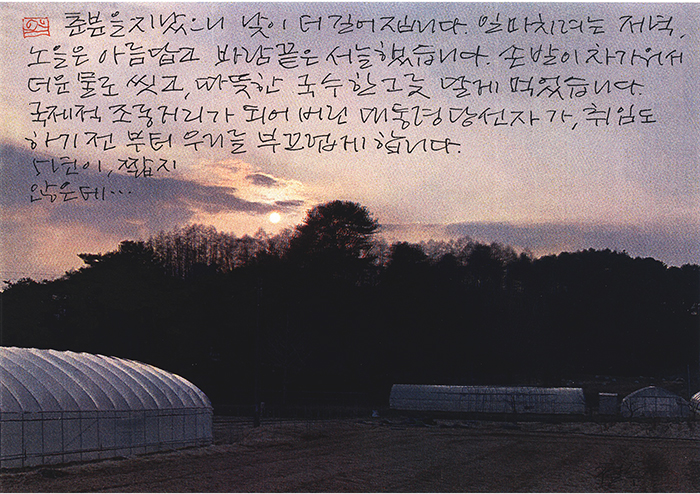 춘분을 지났으니 낮이 더 길어집니다. 일 마치려는 저녁,
노을은 아름답고 바람끝은 서늘했습니다. 손발이 차가워서
더운 물로 씻고, 따뜻한 국수 한 그릇 달게 먹었습니다.
국제적 조롱거리가 되어 버린 대통령 당선자가, 취임도
하기 전부터 우리를 부끄럽게 합니다.
5년이, 짧지
않은데…